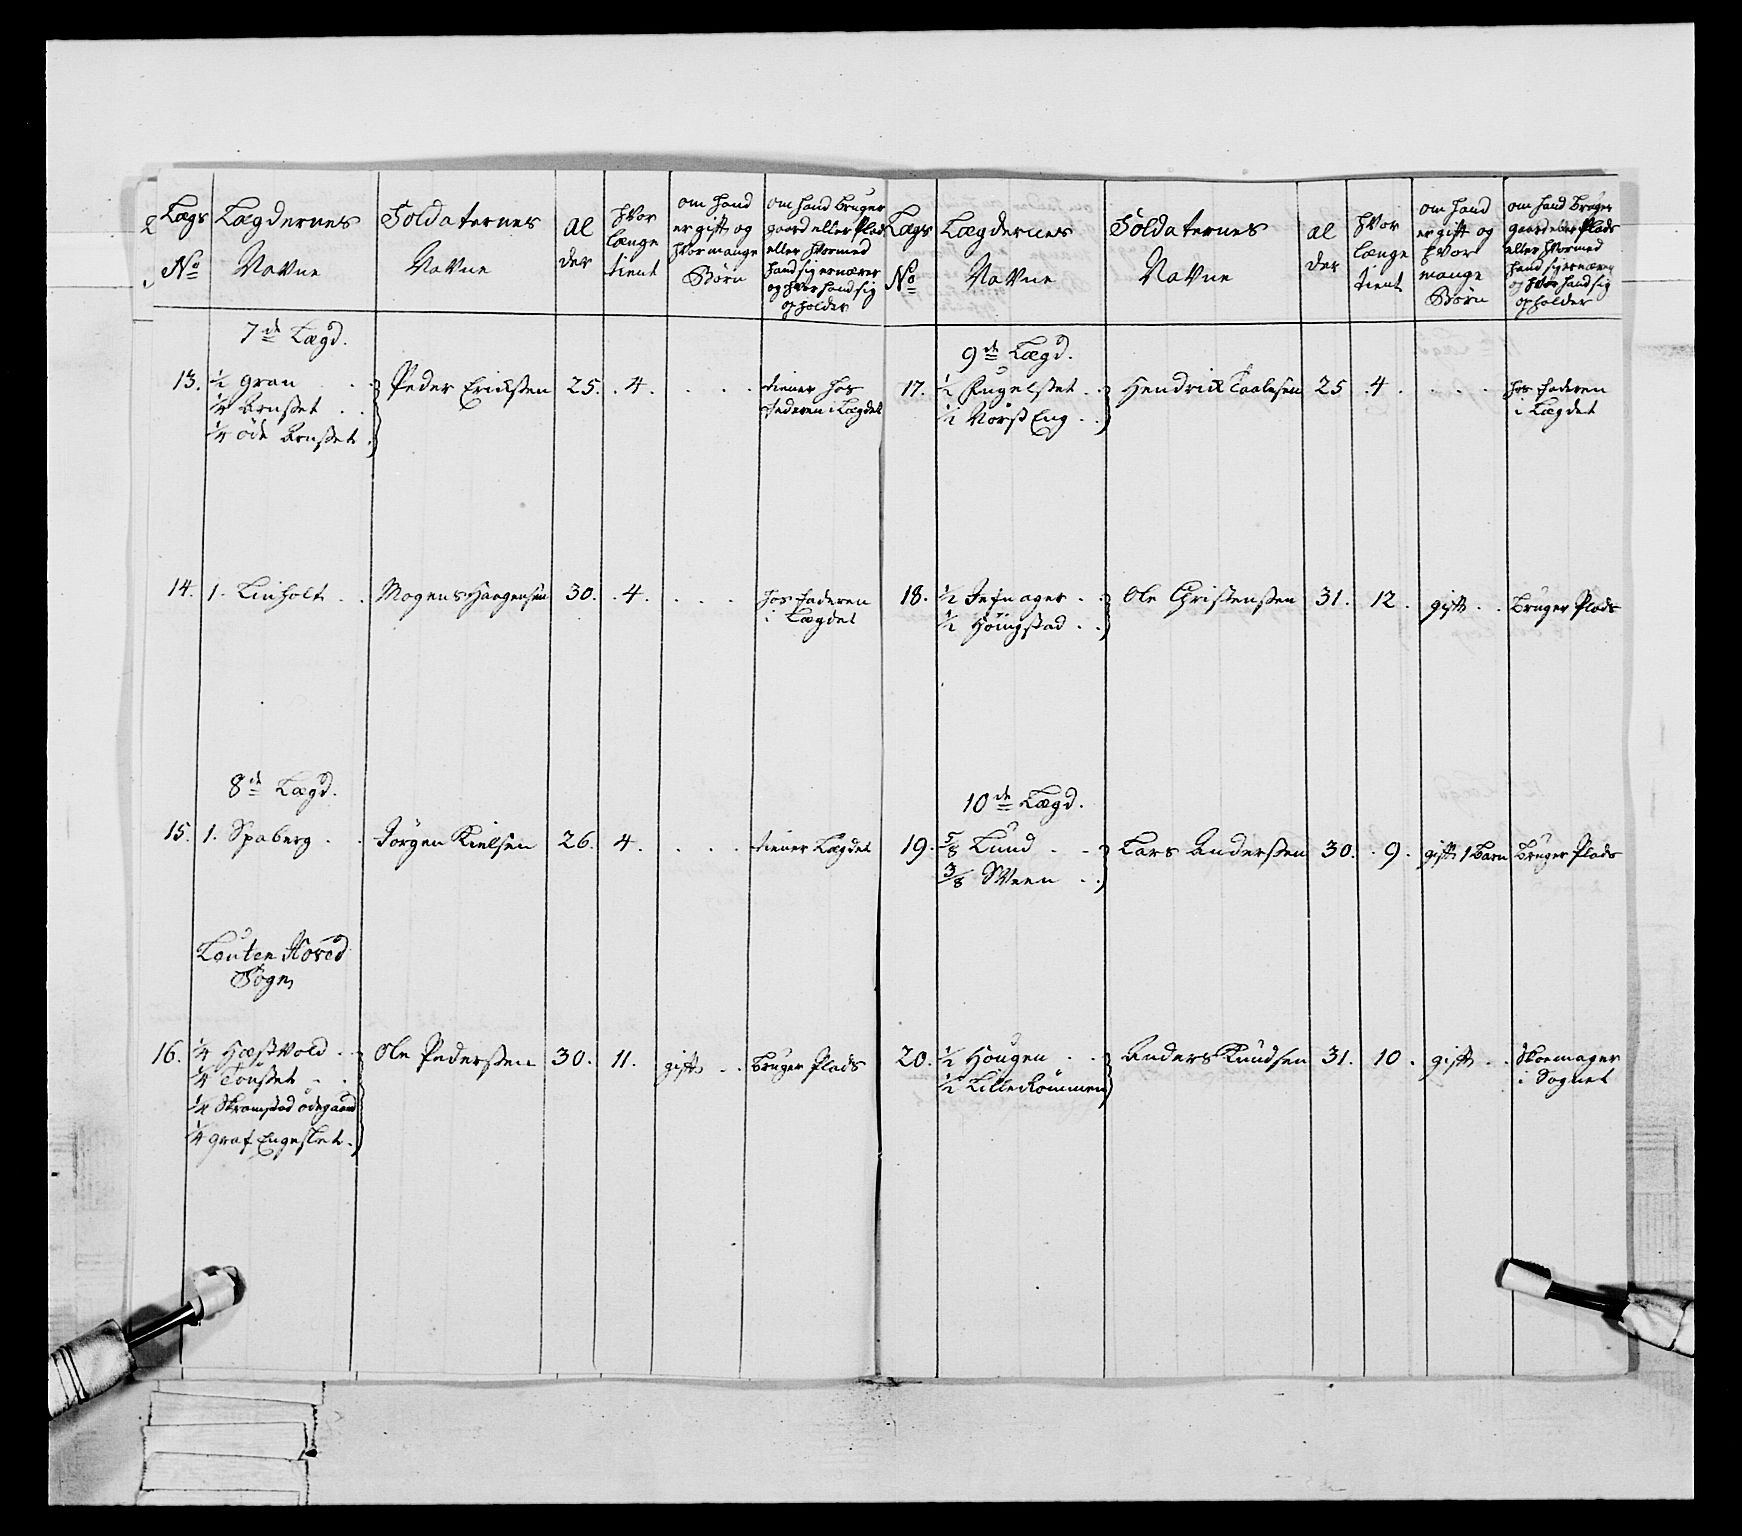 Lægs
No
Lægdernes
Navne
Soldaternes
Navne
al
der
hvor
længe
tient
om hand
er gift og
hvor mange
Børn
om hand bruger
gaard eller Plads
eller hvormed
hand sig ernærer
og hvor hand sig
opholder
7de Lægd.
13. 1/2 Gran . . Peder Ericksen 25. . 4. . . . tiener hos
1/4 Brusset . . Faderen i Lægdet
1/4 øde Brusset .
14. 1. Linholt . . Mogens Haagensen 30. . 4. . . . hos Faderen
i Lægdet
8de Lægd.
15. 1. Spaberg . . Jørgen Kielsen 26. . 4. . . . tiener Lægdet
Løuten Hoved
Sogn
16. 1/4 Hæstvold . . Ole Pedersen 30. 11. gift . . bruger Plads
1/4 Tønset . .
1/4 Skramstad ødegaard
1/4 Graf Engeslet .
Lægs
No
Lægdernes
Navne
Soldaternes
Navne
al
der
hvor
længe
tient
om hand
er gift og
hvor
mange
Børn
om hand bruger
gaard eller Plads
eller hvormed
hand sig ernærer
og hvor hand sig
opholder
9de Lægd.
17. 1/2 . . Hendrick 25 . 4 . . . . hos Faderen
1/2 Eng . . i Lægdet
18. 1/2 . . Ole Christensen 31. 12. gift . . bruger Plads
1/2 . .
10de Lægd.
19. 5/8 Lund . . Lars Andersen 30. . 9. gift 1 Barn bruger Plads
3/8 Sveen . .
20. 1/2 Hougen . . Anders Knudsen 31. 10. gift . . Skoemager
1/2 Lille Rømmen i Sognet